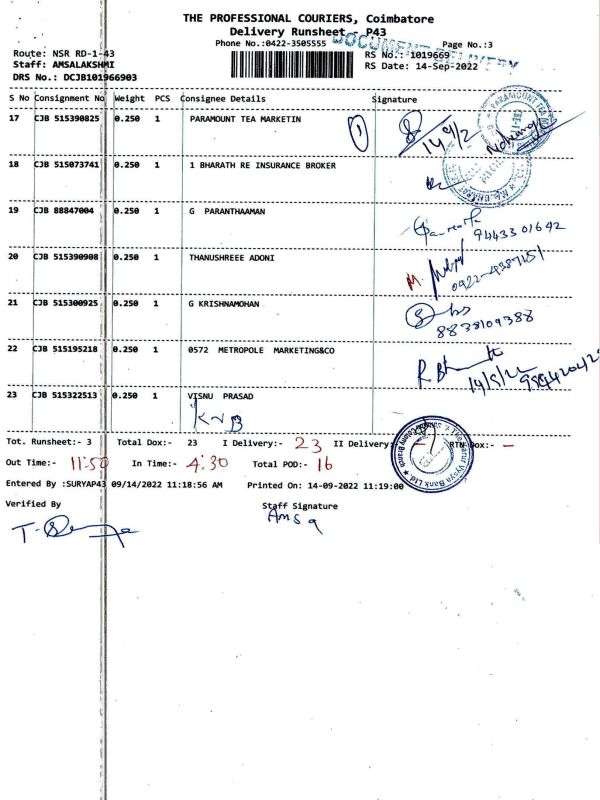 THE PROFESSIONAL COURIERS, Coimbatore
Delivery Runsheet - P43
Phone No.:0422-3505555
DOCUMENT DELIVERY
Page No.:3
Route: NSR RD-1-43
RS No.: 1019669
Staff: AMSALAKSHMI
RS Date: 14-Sep-2022
DRS No.: DCJB101966903
S No Consignment No Weight PCS Consignee Details Signature
17 CJB 515390825 0.250 1 PARAMOUNT TEA MARKETIN 1 14/9/2
18 CJB 515073741 0.250 1 1 BHARATH RE INSURANCE BROKER
19 CJB 88847004 0.250 1 G PARANTHAAMAN
9443301642
20 CJB 515390908 0.250 1 THANUSHREEE ADONI
0922-4387151
21 CJB 515300925 0.250 1 G KRISHNAMOHAN
8838109388
22 CJB 515195218 0.250 1 0572 METROPOLE MARKETING&CO
23 CJB 515322513 0.250 1 VISNU PRASAD
Tot. Runsheet:- 3 Total Dox:- 23 I Delivery:- 23 II Delivery:- - RTN Dox:- -
Out Time:- 11:50 In Time:- 4:30 Total POD:- 16
Entered By :SURYAP43 09/14/2022 11:18:56 AM Printed On: 14-09-2022 11:19:00
Verified By Staff Signature
Amsa